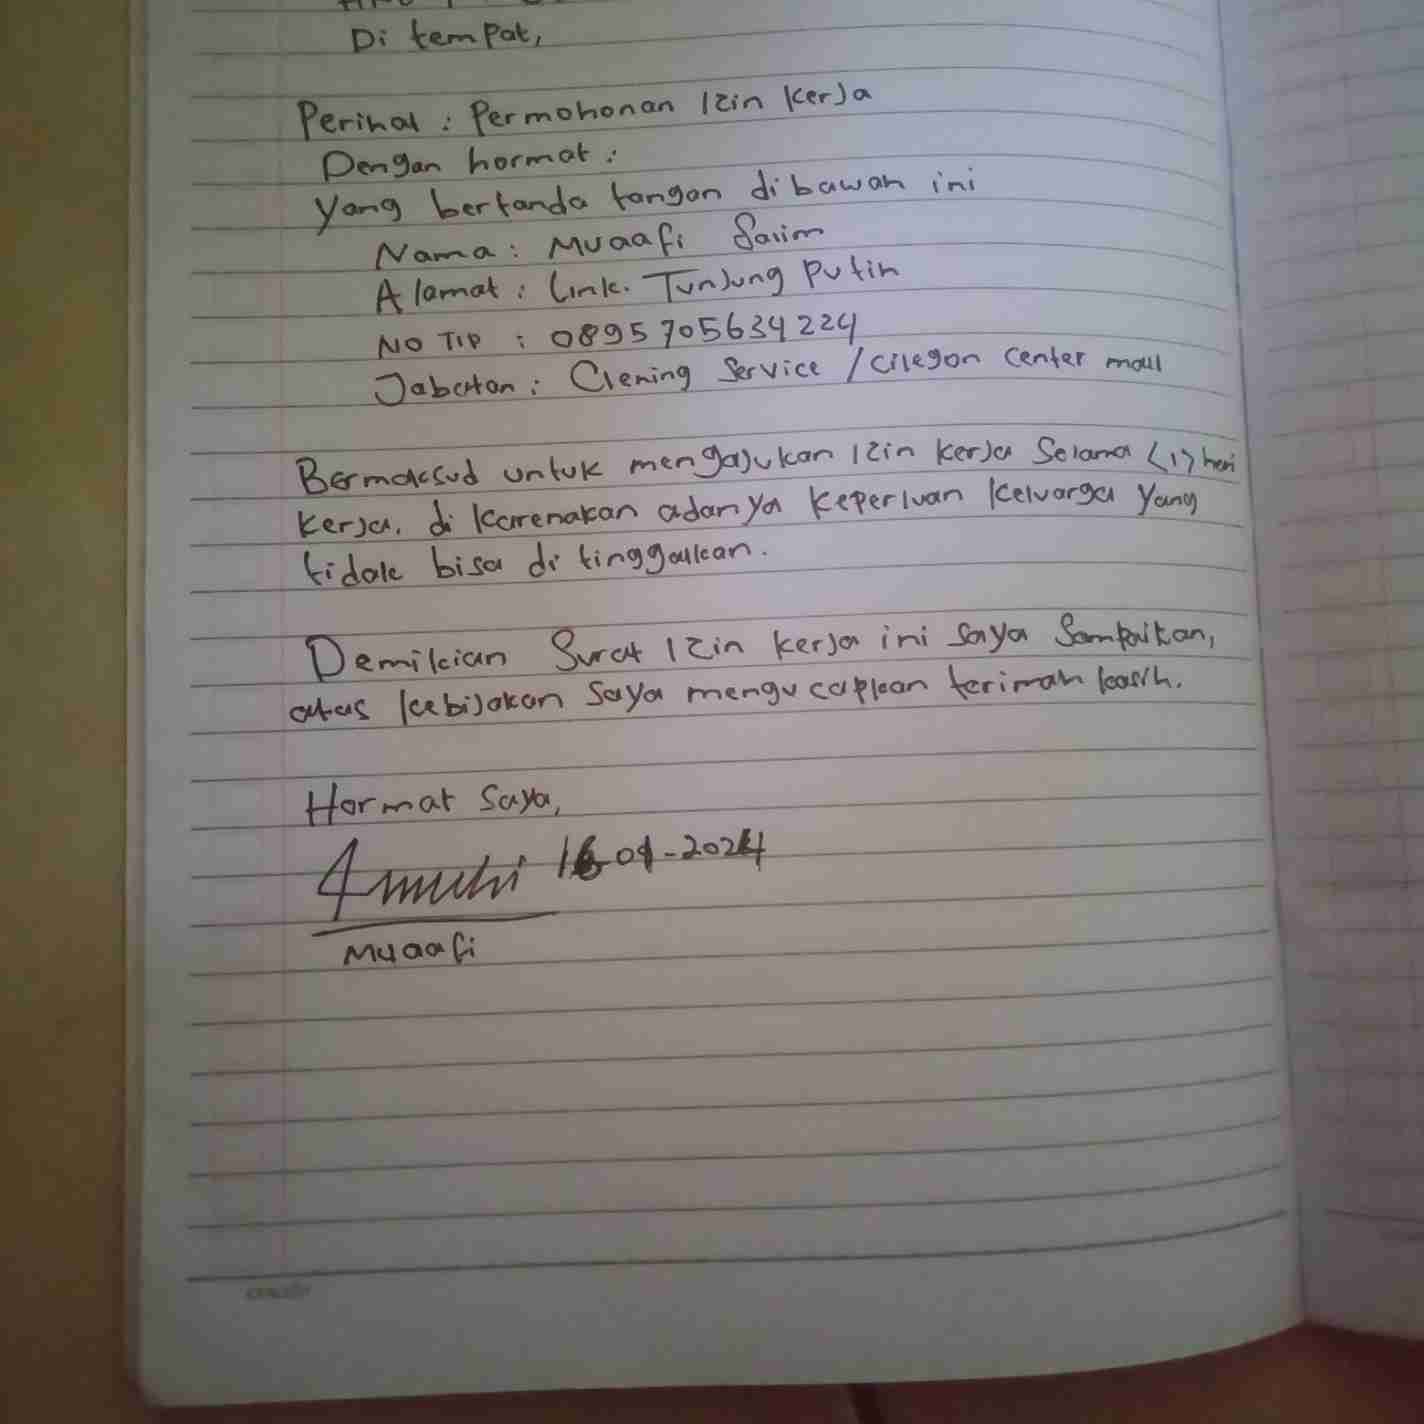 Di tempat,
Perihal : Permohonan Izin kerja
Dengan hormat :
Yang bertanda tangan dibawah ini
Nama : Muaafi Salim
Alamat : Link. Tunjung Putih
NO Tlp : 0895705634224
Jabatan : Clening Service / Cilegon Center mall
Bermaksud untuk mengajukan Izin kerja Selama <1> hari
kerja, di karenakan adanya keperluan keluarga yang
tidak bisa di tinggalkan.
Demikian Surat Izin kerja ini saya Sampaikan,
atas kebijakan saya mengucapkan terimah kasih.
Hormat saya,
16 01-2024
Muaafi